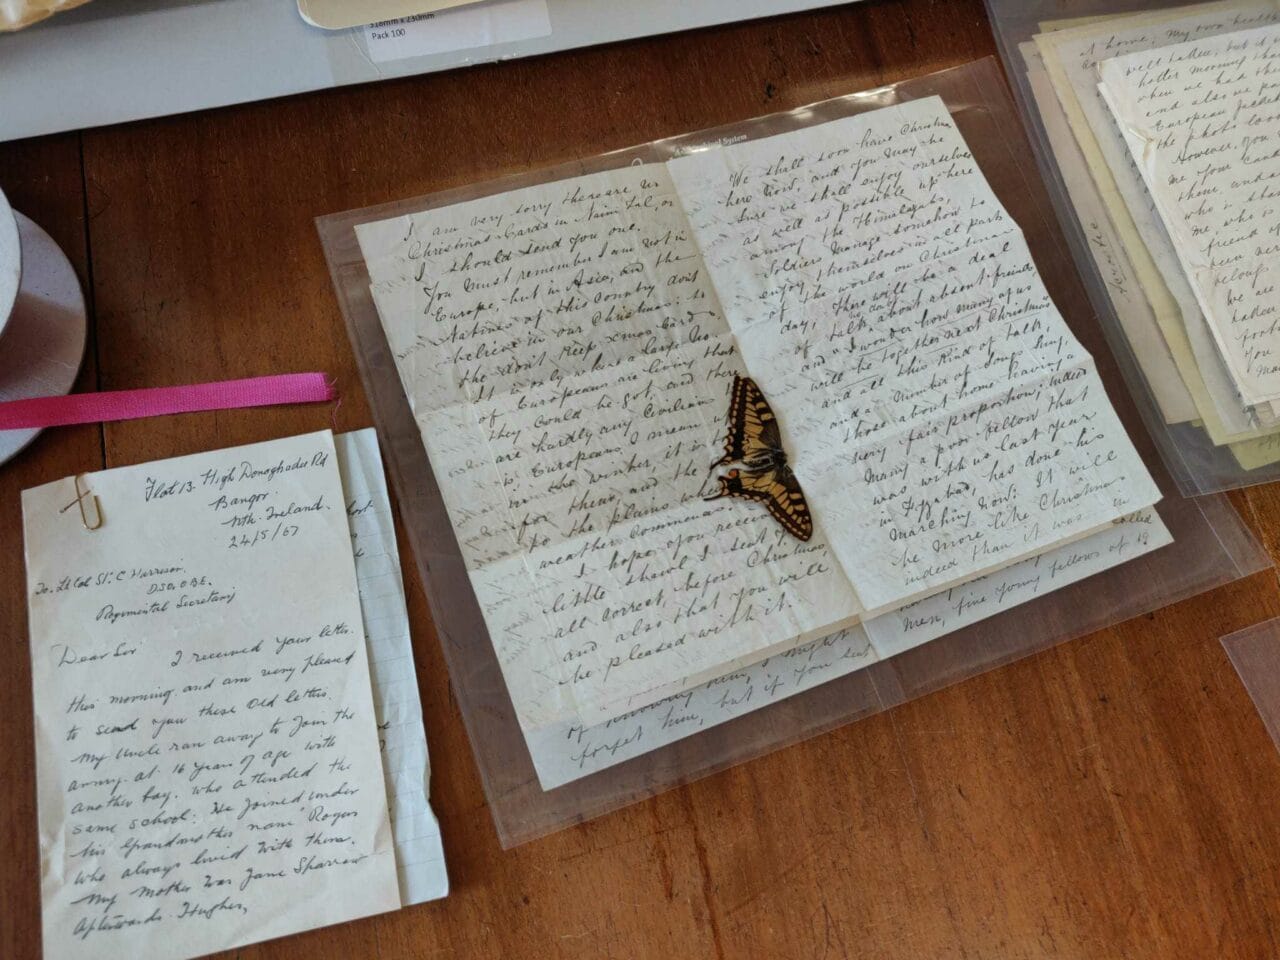 318mm x 230mm
Pack 100
Flat 13. High Donaghadee Rd
Bangor.
Nth. Ireland.
24/5/67
To. Lt Col St. C Harrison.
DSO, OBE.
Regimental Secretary
Dear Sir I received your letter.
this morning and am very pleased
to send you these old letters.
My Uncle ran away to Join the
army at 16 years of age with
another boy. who attended the
same school: He Joined under
his Grandmother name "Rogers
who always lived with them.
My Mother was Jane Sharrow
afterwards Hughes,
I am very sorry there are no
Christmas Cards in Naini Tal, or
I should send you one.
You must remember I am not in
Europe, but in Asia, and the
Natives of this Country don't
believe in our Christmas: so
the don't Keep Xmas Cards
It is only where a large No.
of Europeans are living that
they could be got, and there
are hardly any Civilian
Europeans I mean
in the winter, it is
for them, and the
to the plains when
weather Commences.
I hope you receive
little shawl I sent
all correct, before Christmas,
and also that you will
be pleased with it.
of knowing him, I might
forget him, but if you sent
System
We shall soon have Christmas
here now, and you may be
Sure we shall enjoy ourselves
as well as possible up here
among the Himalayas,
Soldiers Manage somehow to
enjoy themselves in all parts
of the world on Christmas
day, There will be a deal
of talk about absent friends,
and "I wonder how many of us
will be together next Christmas"
and all this Kind of talk,
and a Number of Songs Sung,
those about home having a
very fair proportion; indeed
Many a poor fellow that
was with us last year
in Fyzabad, has done his
Marching Now: It will
be more like Christmas
indeed than it was in
called
Men, fine young fellows of 19
at home, My own health
well
hotter morning than
when we had the
and also we
European
the photo
However, you
Me your
them, and
who is
Me, who is
friend of
been
belong
We are
taken
You